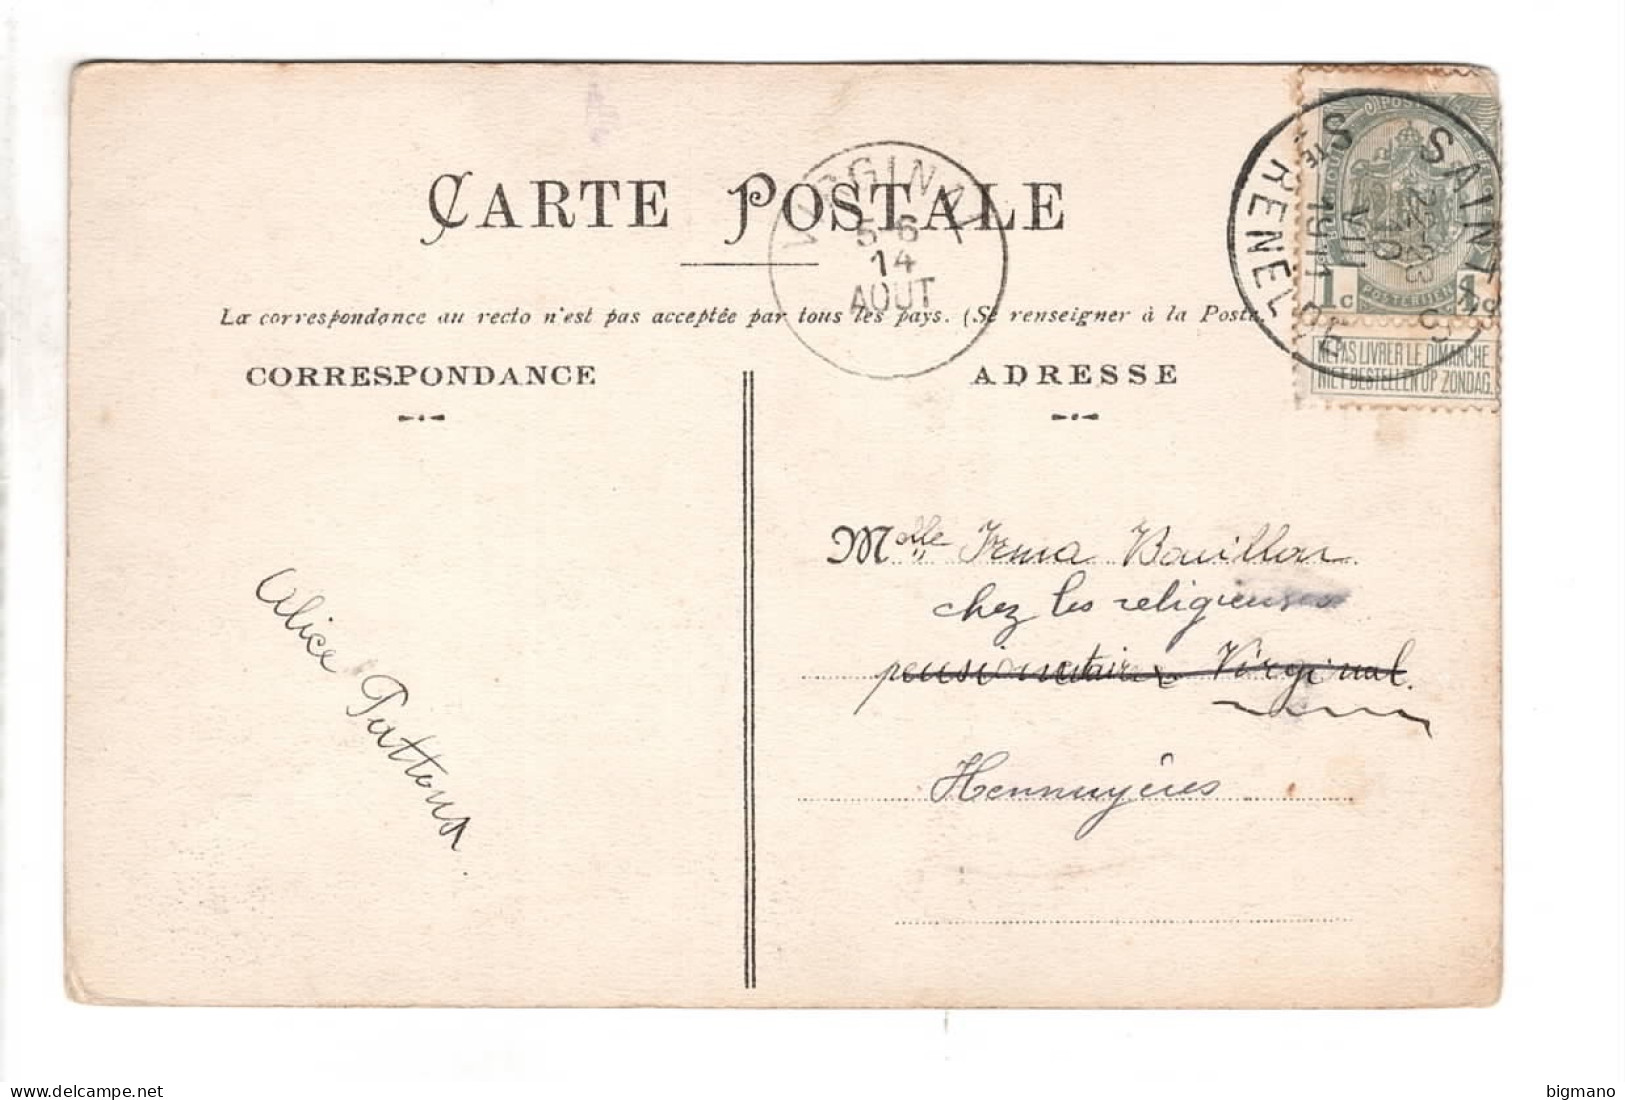 CARTE POSTALE
VIRGINAL
5-6
14
AOUT
La correspondance au recto n'est pas acceptée par tous les pays. (Se renseigner à la Poste.
CORRESPONDANCE
ADRESSE
SAINTES
STE RENELDE
1911
VIII
10
1c
POSTERIJEN
NE PAS LIVRER LE DIMANCHE
NIET BESTELLEN OP ZONDAG
Melle Irma Bouillon
chez les religieuses
pensionnataire Virginal.
Hennuyères
Alice
delcampe.net
bigmano